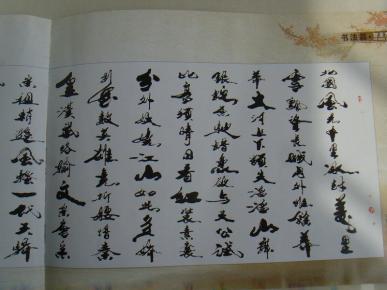 书法篇
北國風光千里冰封萬里
雪飄望長城內外惟餘莽
莽大河上下頓失滔滔山舞
銀蛇原馳蠟象欲與天公試
比高須晴日看紅裝素裹
分外妖嬈江山如此多嬌
引無數英雄競折腰惜秦
皇漢武略輸文采唐宗
宋祖稍遜風騷一代天驕